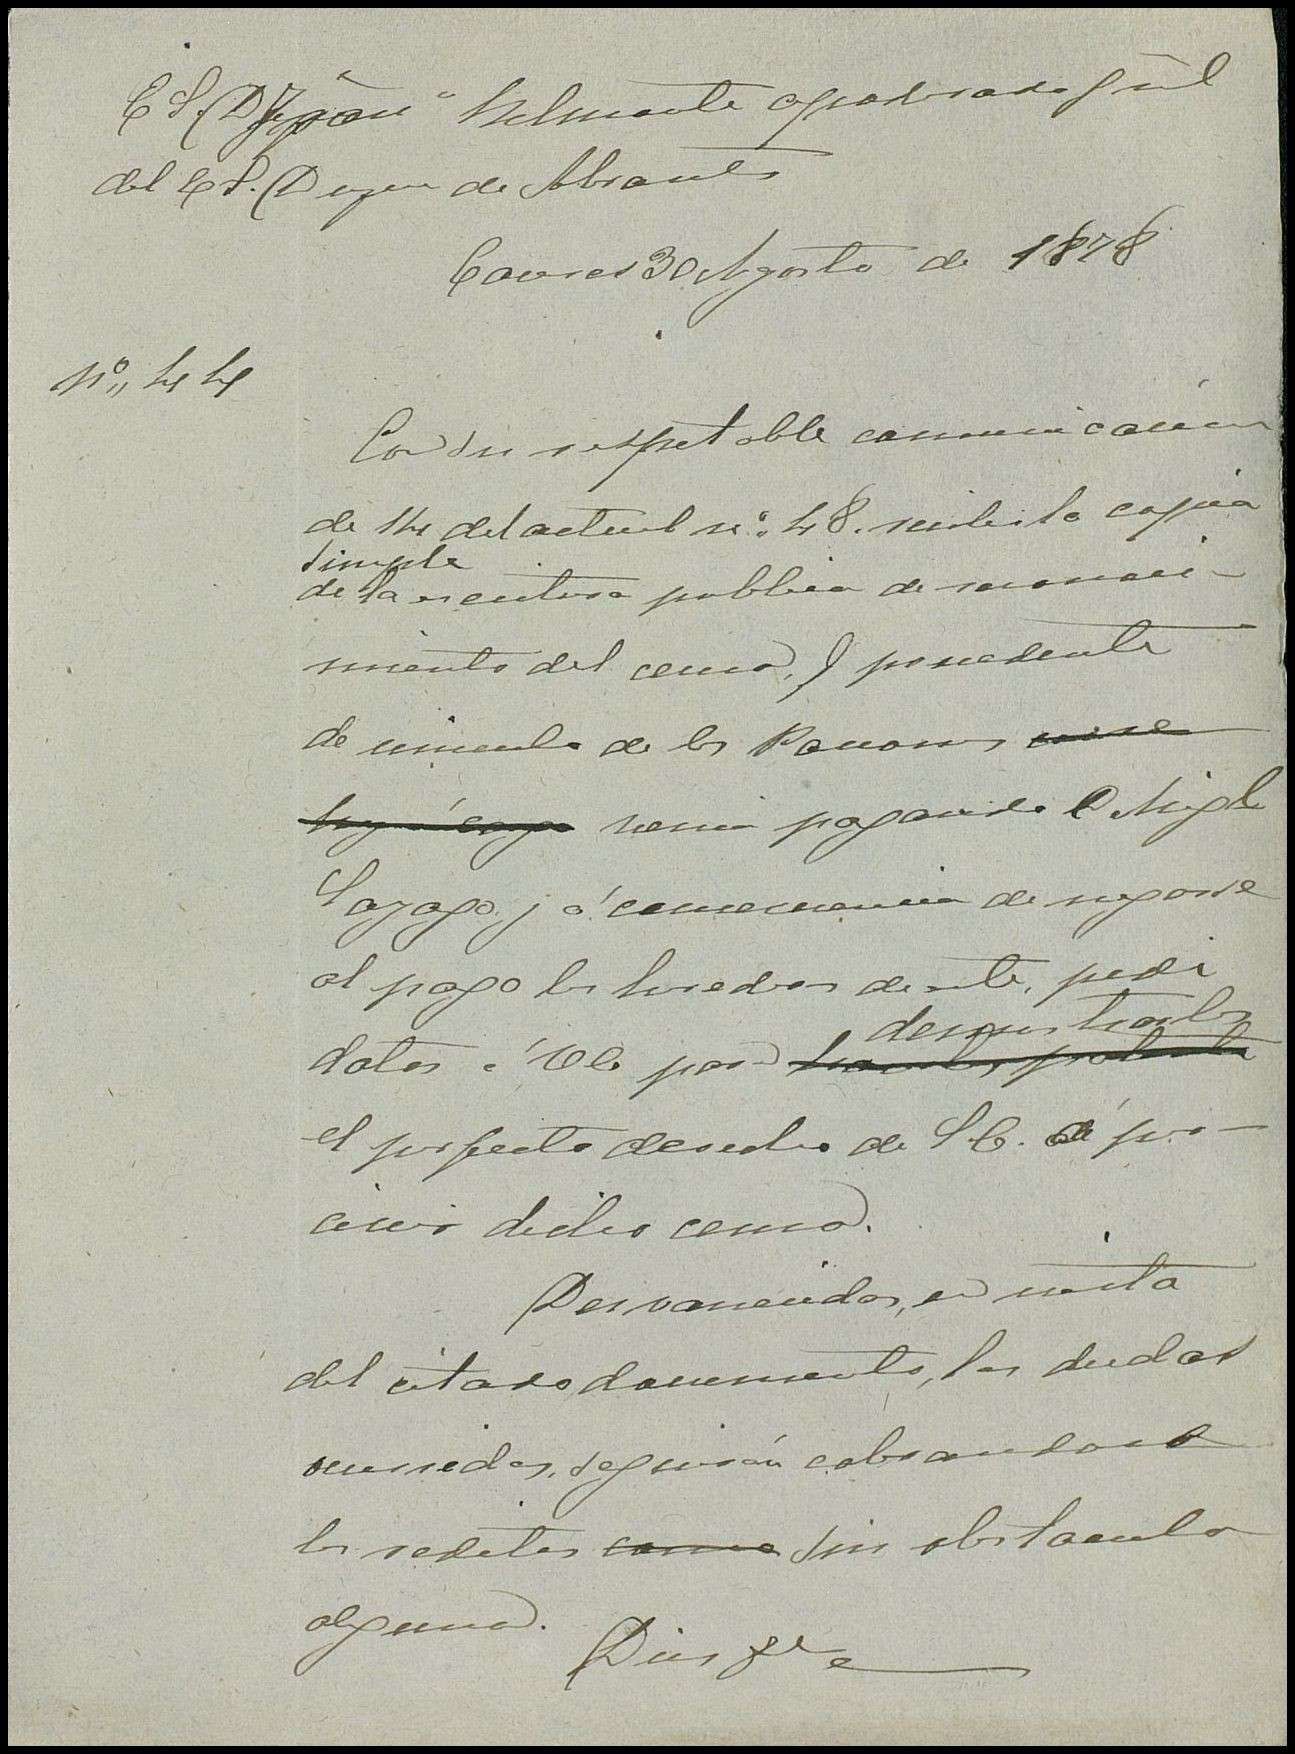 E S. D. Belmonte apoderado gral
del E S. Duque de Abrantes
Caceres 30 Agosto de 1878
Nº 44
Con su respetable comunicación
de 14 del actual nº 48. recibi la copia
simple
de la escritura publica de reconoci-
miento del censo, q procedente
de vinculo de los Pavones
venia pagando D Migl
Sayago, y á consecuencia de negarse
al pago los herederos de este, pedi
demostrarles
datos á VE para
el perfecto derecho de S E. á per-
cibir dicho censo.
Desvanecidas, en vista
del citado documento, las dudas
ocurridas, seguirán cobrandose
los reditos sin obstaculo
alguno.
Dios gue